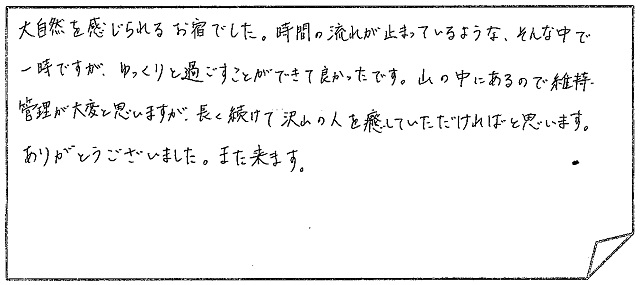 大自然を感じられるお宿でした。時間の流れが止まっているような、そんな中で
一時ですが、ゆっくりと過ごすことができて良かったです。山の中にあるので維持・
管理が大変と思いますが、長く続けて沢山の人を癒していただければと思います。
ありがとうございました。また来ます。